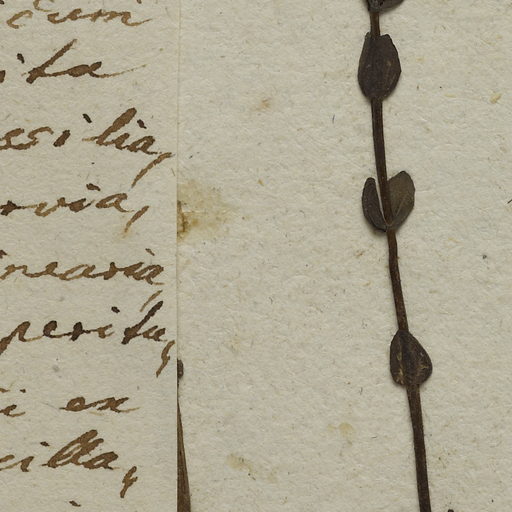 cum
ita
ssilia,
rvia,
inearia,
peritu,
i ex
cilla,